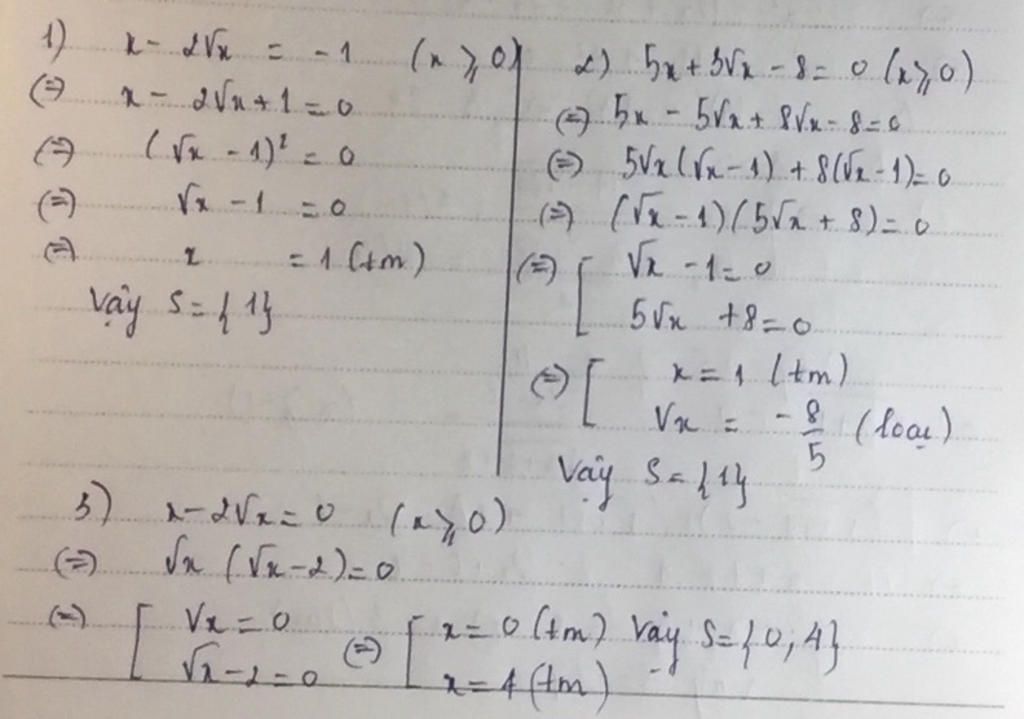 1) x - 2√x = -1 (x ≥ 0)
(=) x - 2√x + 1 = 0
(=) (√x - 1)² = 0
(=) √x - 1 = 0
(=) x = 1 (tm)
Vậy S = {1}
2) 5x + 3√x - 8 = 0 (x ≥ 0)
(=) 5x - 5√x + 8√x - 8 = 0
(=) 5√x (√x - 1) + 8(√x - 1) = 0
(=) (√x - 1)(5√x + 8) = 0
(=) [ √x - 1 = 0
5√x + 8 = 0
(=) [ x = 1 (tm)
√x = -8/5 (loại)
Vậy S = {1}
3) x - 2√x = 0 (x ≥ 0)
(=) √x (√x - 2) = 0
(=) [ √x = 0 (=) [ x = 0 (tm) Vậy S = {0, 4}
√x - 2 = 0 x = 4 (tm)